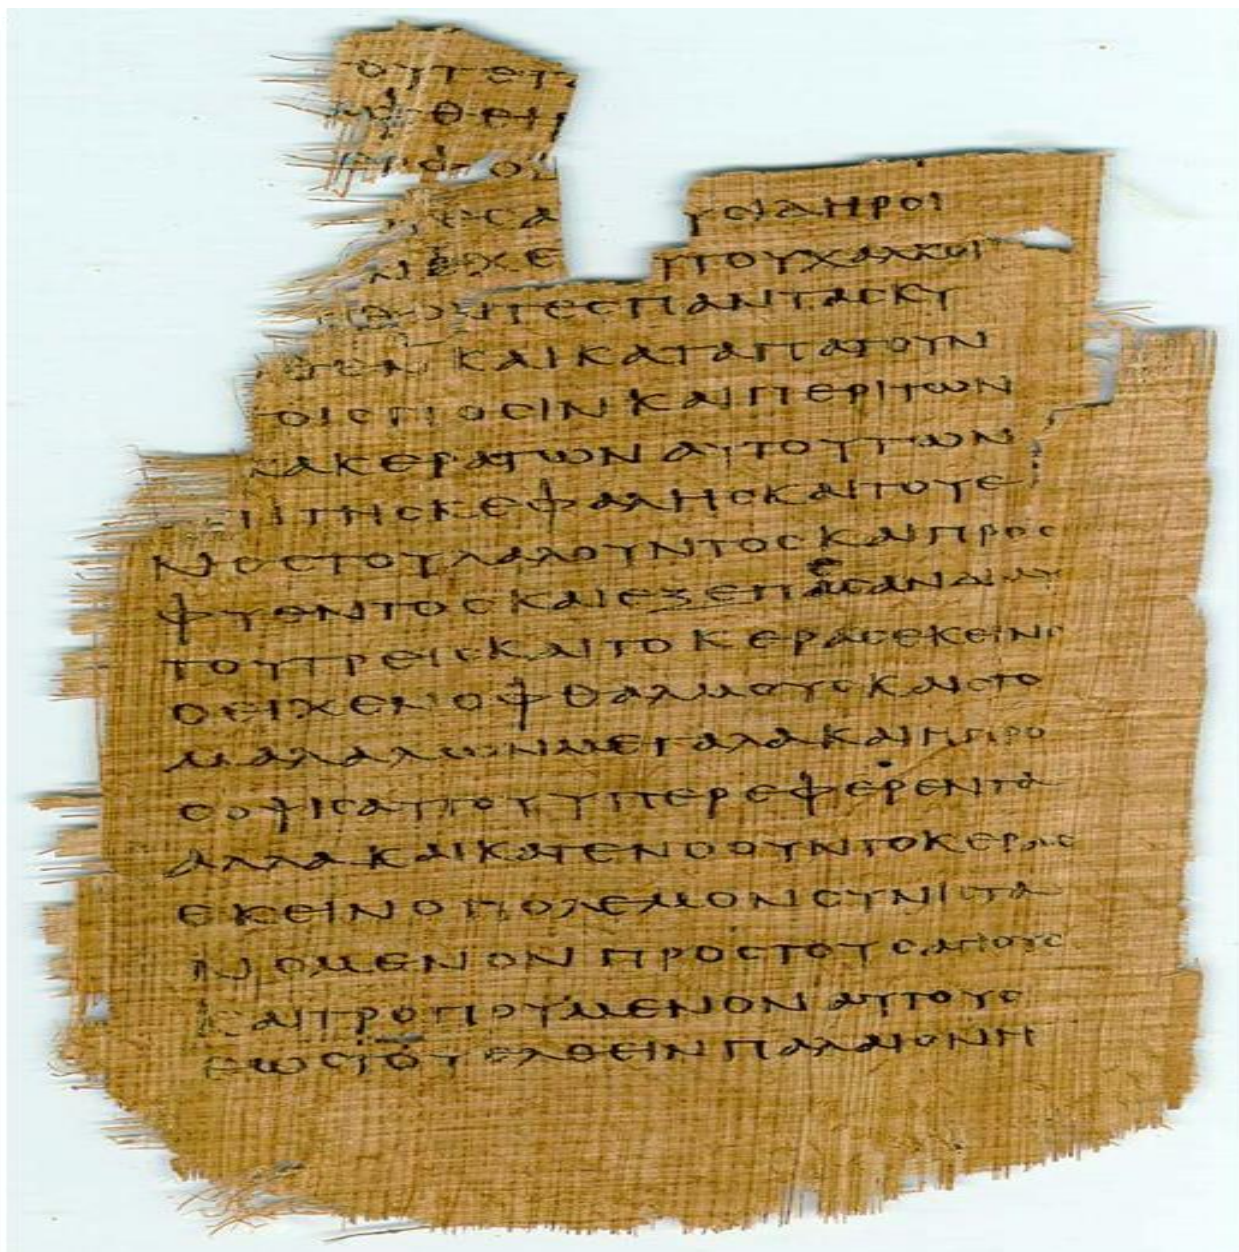 ΟΥΤΕΤ
ΘΕΙ
ΟΥ
ΕCΑ ΥCΙΔΗΡΟΙ
ΝΥΧΕ ΥΤΟΥΧΑΛΚΟΙ
ΘΙΟΝΤΕCΠΑΝΤΑCΚΥ
ΘΕΝ ΚΑΙΚΑΤΑΠΑΤΟΥΝ
ΤΟΙCΠΟCΙΝΚΑΙΠΕΡΙΤΩΝ
ΚΑΚΕΡΑΤΩΝΑΥΤΟΥΤΩΝ
ΠΙΤΗCΚΕΦΑΛΗCΚΑΙΤΟΥΕ
ΝΟCΤΟΥΛΑΛΟΥΝΤΟCΚΑΙΠΡΟC
ΦΥΕΝΤΟCΚΑΙΕΞΕΠΕCΑΝΔΙΑΥ
ΤΟΥΤΡΕΙCΚΑΙΤΟΚΕΡΑCΕΚΕΙΝΟ
ΟΕΙΧΕΝΟΦΘΑΛΜΟΥCΚΑΙCΤΟ
ΜΑΛΑΛΩΝΜΕΓΑΛΑΚΑΙΗΠΡΟ
CΟΨΙCΑΥΤΟΥΥΠΕΡΕΦΕΡΕΝΤΑ
ΑΛΛΑΚΑΙΚΑΤΕΝΟΟΥΝΤΟΚΕΡΑC
ΕΚΕΙΝΟΠΟΛΕΜΟΝCΥΝΙCΤΑ
ΝΟΜΕΝΟΝΠΡΟCΤΟΥCΑΓΙΟΥC
ΚΑΙΤΡΟΠΟΥΜΕΝΟΝΑΥΤΟΥC
ΕΩCΤΟΥΕΛΘΕΙΝΠΑΛΑΙΟΝΗ